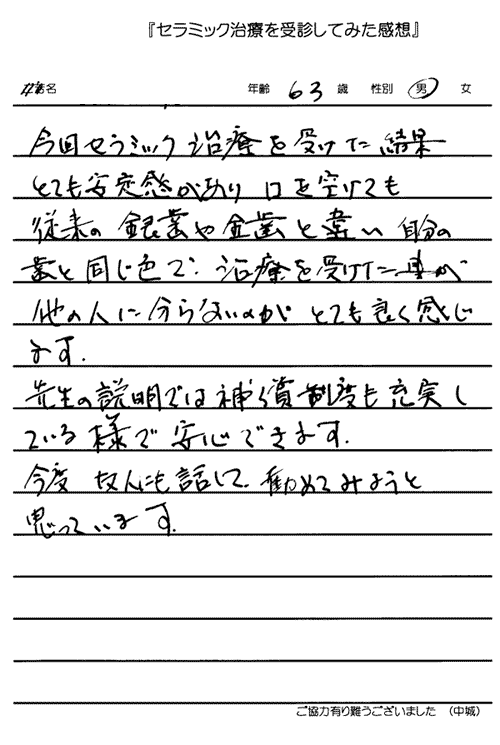 『セラミック治療を受診してみた感想』
名 年齢 63 歳 性別 男 女
今回セラミック治療を受けた結果
とても安定感があり 口を空けても
従来の銀歯や金歯と違い 自分の
歯と同じ色で 治療を受けた事が
他の人に分らないのが とても良く感じ
ます.
先生の説明では補償制度も充実し
ている様で 安心できます.
今度 友人にも話して 勧めてみようと
思っています.
ご協力有り難うございました (中城)